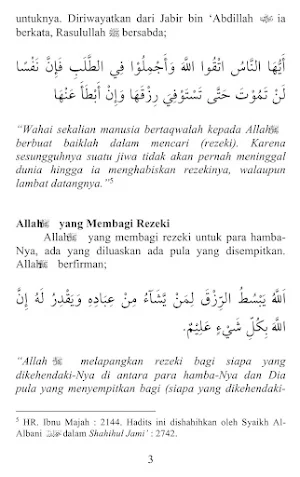 untuknya. Diriwayatkan dari Jabir bin ‘Abdillah ia
berkata, Rasulullah ﷺ bersabda;
أَيُّهَا النَّاسُ اتَّقُوا اللَّهَ وَأَجْمِلُوْا فِي الطَّلَبِ فَإِنَّ نَفْسًا
لَنْ تَمُوْتَ حَتَّى تَسْتَوْفِيَ رِزْقَهَا وَإِنْ أَبْطَأَ عَنْهَا
“Wahai sekalian manusia bertaqwalah kepada Allah
berbuat baiklah dalam mencari (rezeki). Karena
sesungguhnya suatu jiwa tidak akan pernah meninggal
dunia hingga ia menghabiskan rezekinya, walaupun
lambat datangnya.”⁵
Allah yang Membagi Rezeki
Allah yang membagi rezeki untuk para hamba-
Nya, ada yang diluaskan ada pula yang disempitkan.
Allah berfirman;
اَللَّهُ يَبْسُطُ الرِّزْقَ لِمَنْ يَّشَآءُ مِنْ عِبَادِهِ وَيَقْدِرُ لَهُ إِنَّ
اللَّهَ بِكُلِّ شَيْءٍ عَلِيْمٌ.
“Allah melapangkan rezeki bagi siapa yang
dikehendaki-Nya di antara para hamba-Nya dan Dia
pula yang menyempitkan bagi (siapa yang dikehendaki-
⁵ HR. Ibnu Majah : 2144. Hadits ini dishahihkan oleh Syaikh Al-
Albani dalam Shahihul Jami’ : 2742.
3